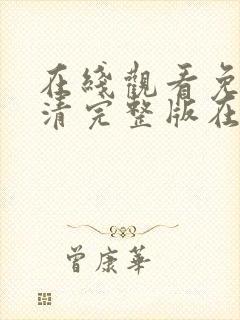 在綫觀看免
清完整版在
曾康華